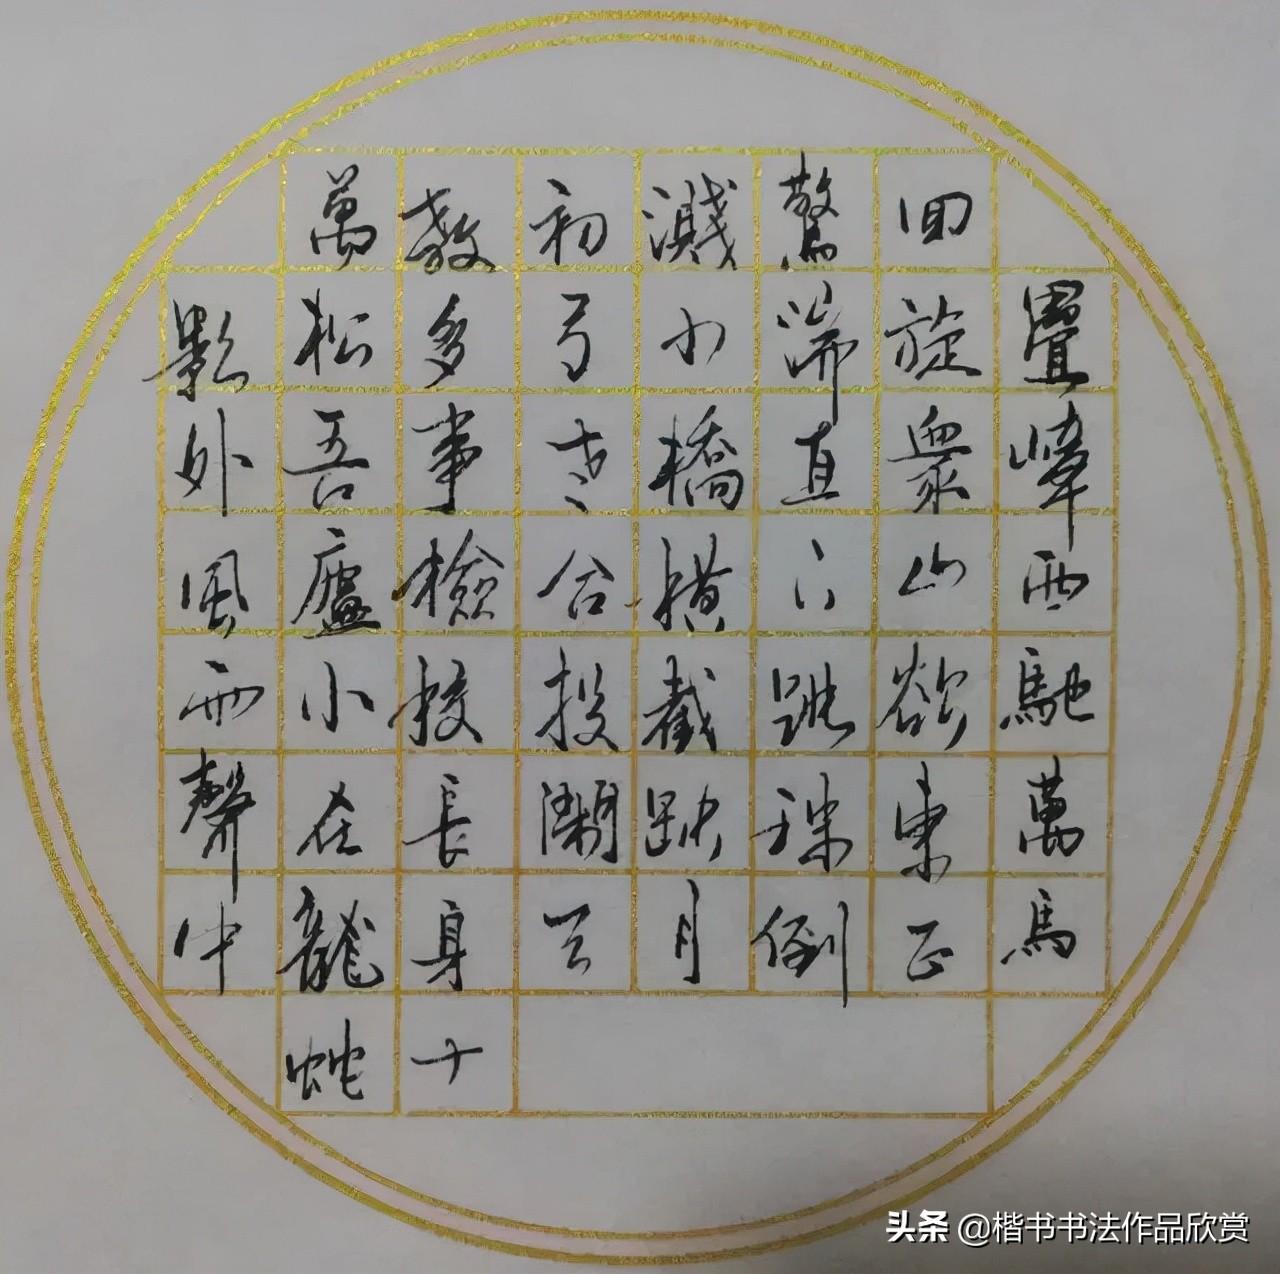 疊嶂西馳萬馬
回旋衆山欲東正
驚湍直下跳珠倒
濺小橋橫截缺月
初弓老合投閑天
教多事檢校長身十
萬松吾廬小在龍蛇
影外風雨聲中
头条 @楷书书法作品欣赏